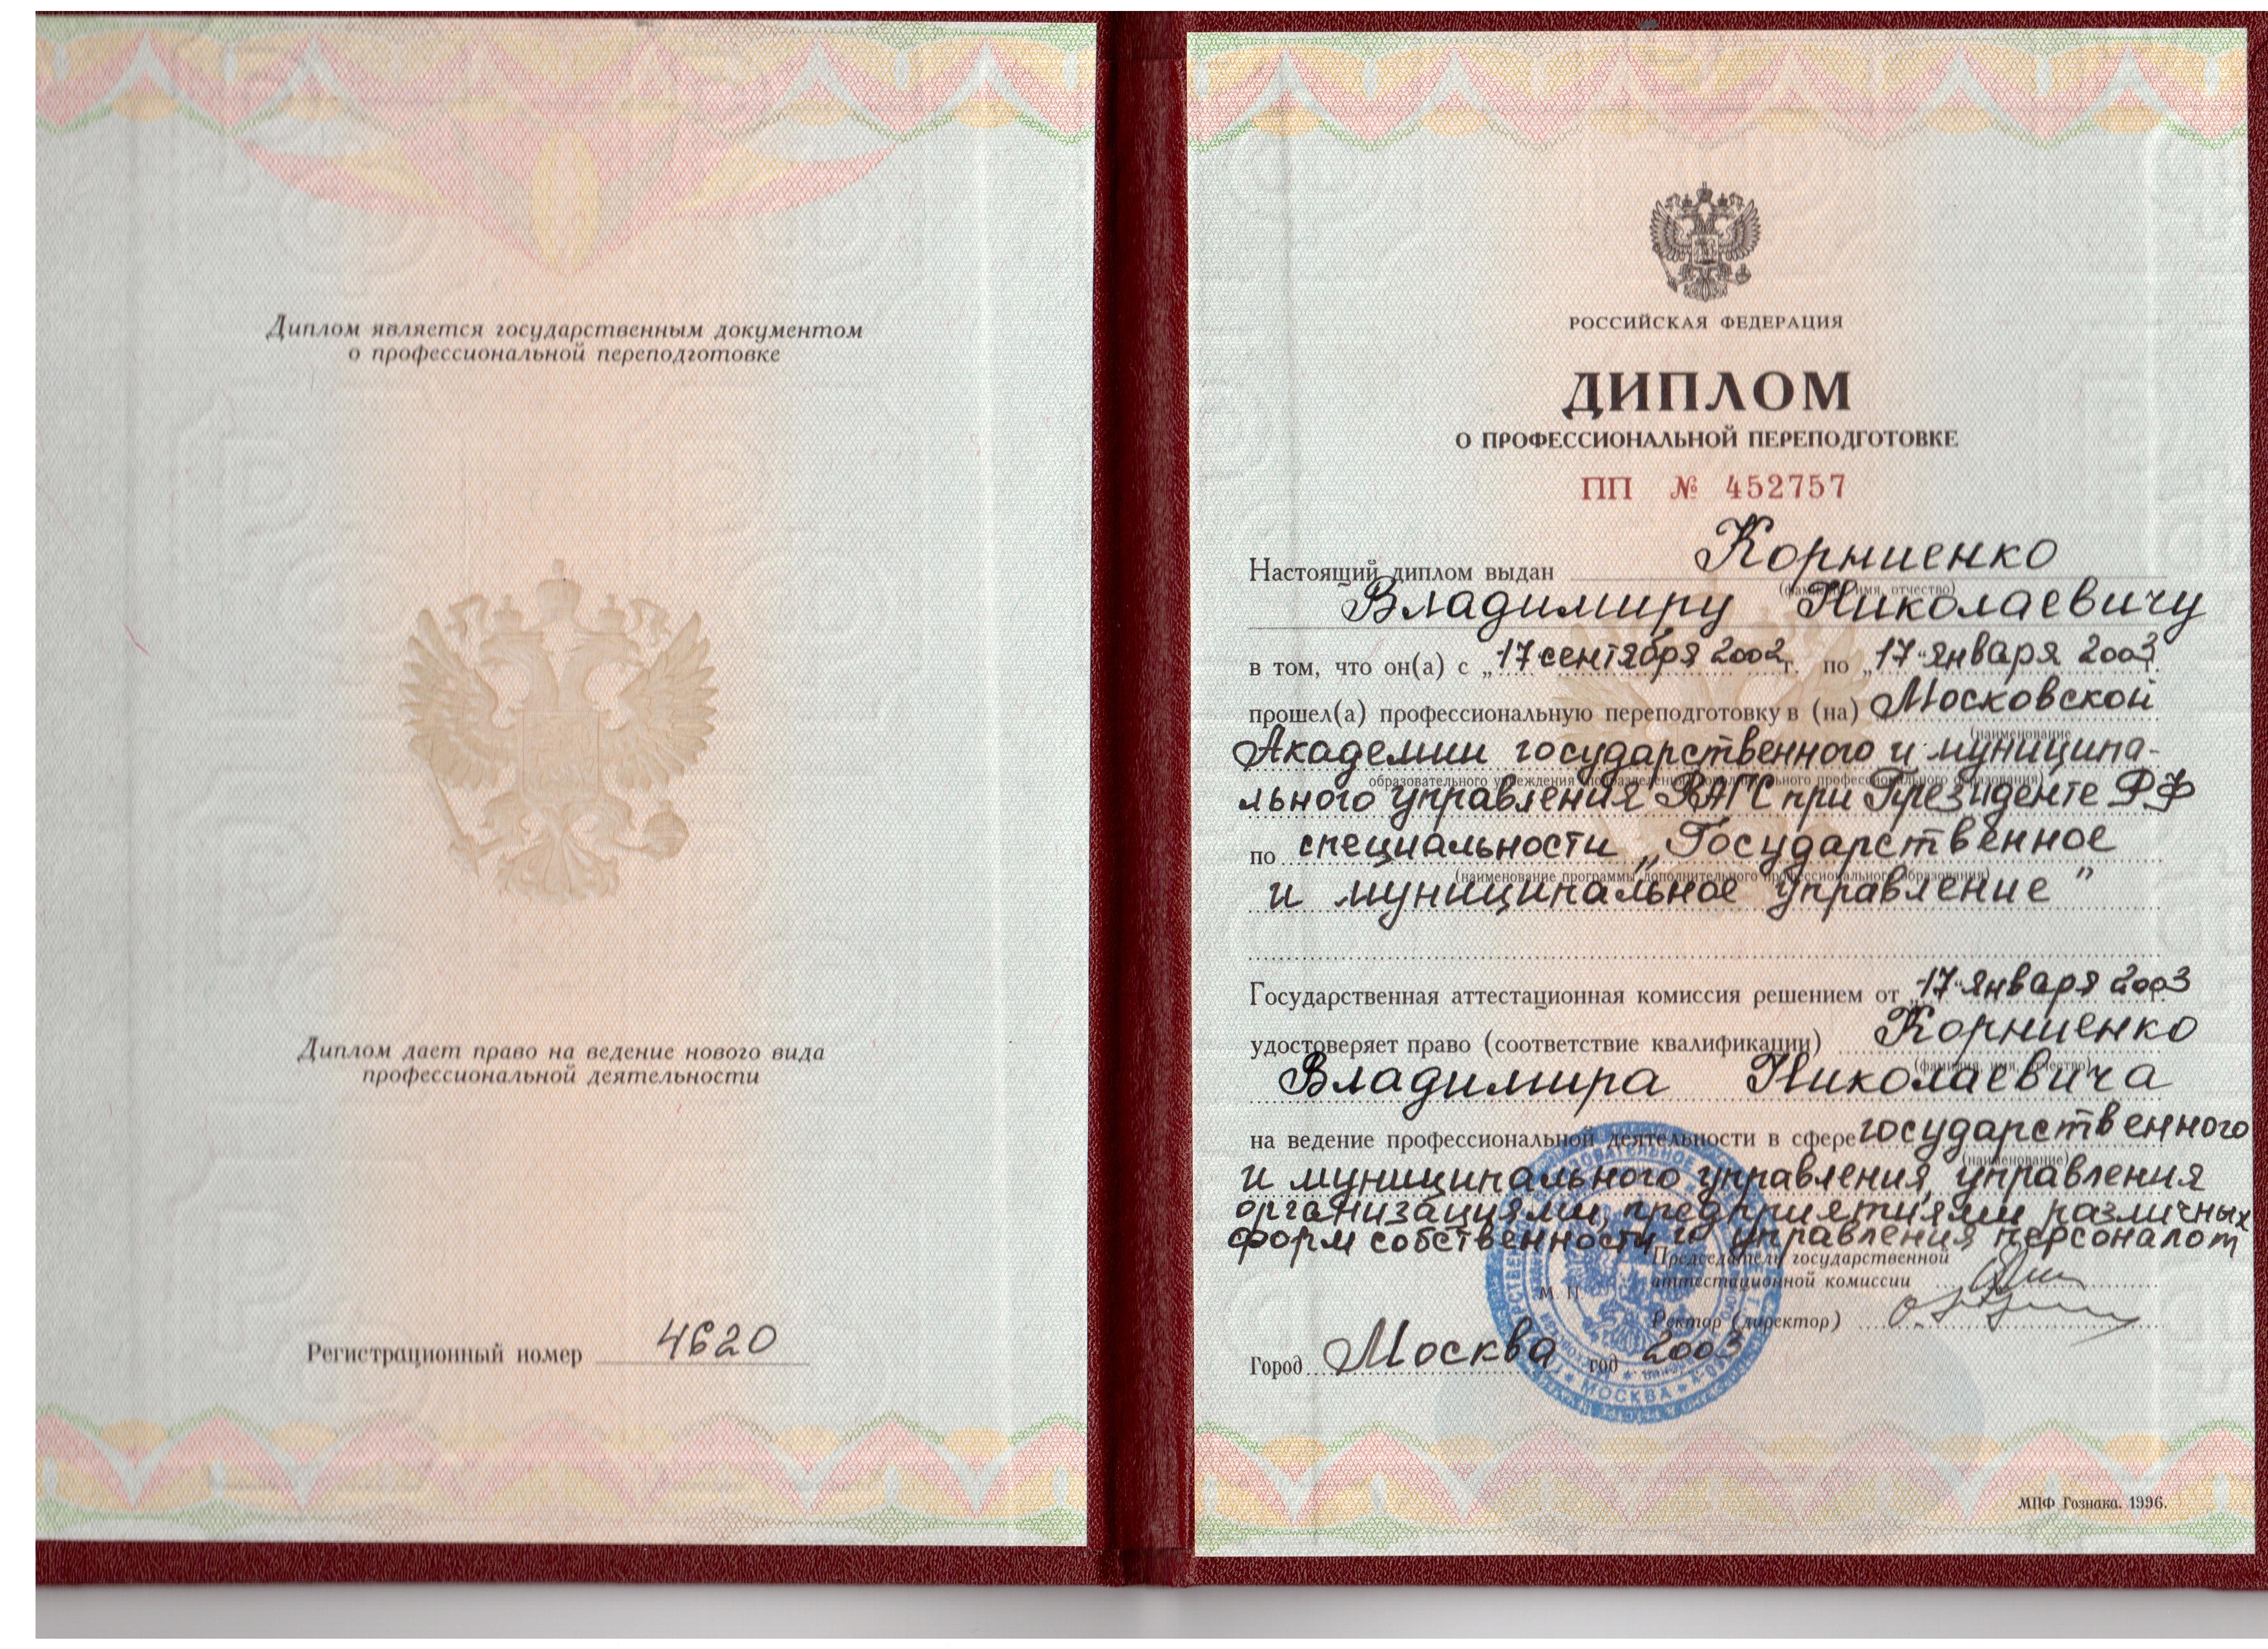 Диплом является государственным документом
о профессиональной переподготовке
Диплом дает право на ведение нового вида
профессиональной деятельности
Регистрационный номер 4620
РОССИЙСКАЯ ФЕДЕРАЦИЯ
ДИПЛОМ
О ПРОФЕССИОНАЛЬНОЙ ПЕРЕПОДГОТОВКЕ
ПП № 452757
Настоящий диплом выдан Корниенко
(фамилия, имя, отчество)
Владимиру Николаевичу
в том, что он(а) с „17" сентября 2002 г. по „17" января 2003 г.
прошел(а) профессиональную переподготовку в (на) Московской
(наименование
Академии государственного и муниципа-
образовательного учреждения (подразделения) дополнительного профессионального образования)
льного управления РАГС при Президенте РФ
по специальности „Государственное
(наименование программы дополнительного профессионального образования)
и муниципальное управление"
Государственная аттестационная комиссия решением от „17" января 2003 г.
удостоверяет право (соответствие квалификации) Корниенко
(фамилия, имя, отчество)
Владимира Николаевича
на ведение профессиональной деятельности в сфере государственного
(наименование)
и муниципального управления, управления
организациями, предприятиями различных
форм собственности и управления персоналом
Председатель государственной
аттестационной комиссии
М. П.
Ректор (директор)
Город Москва год 2003
МОСКВА
МПФ Гознака. 1996.